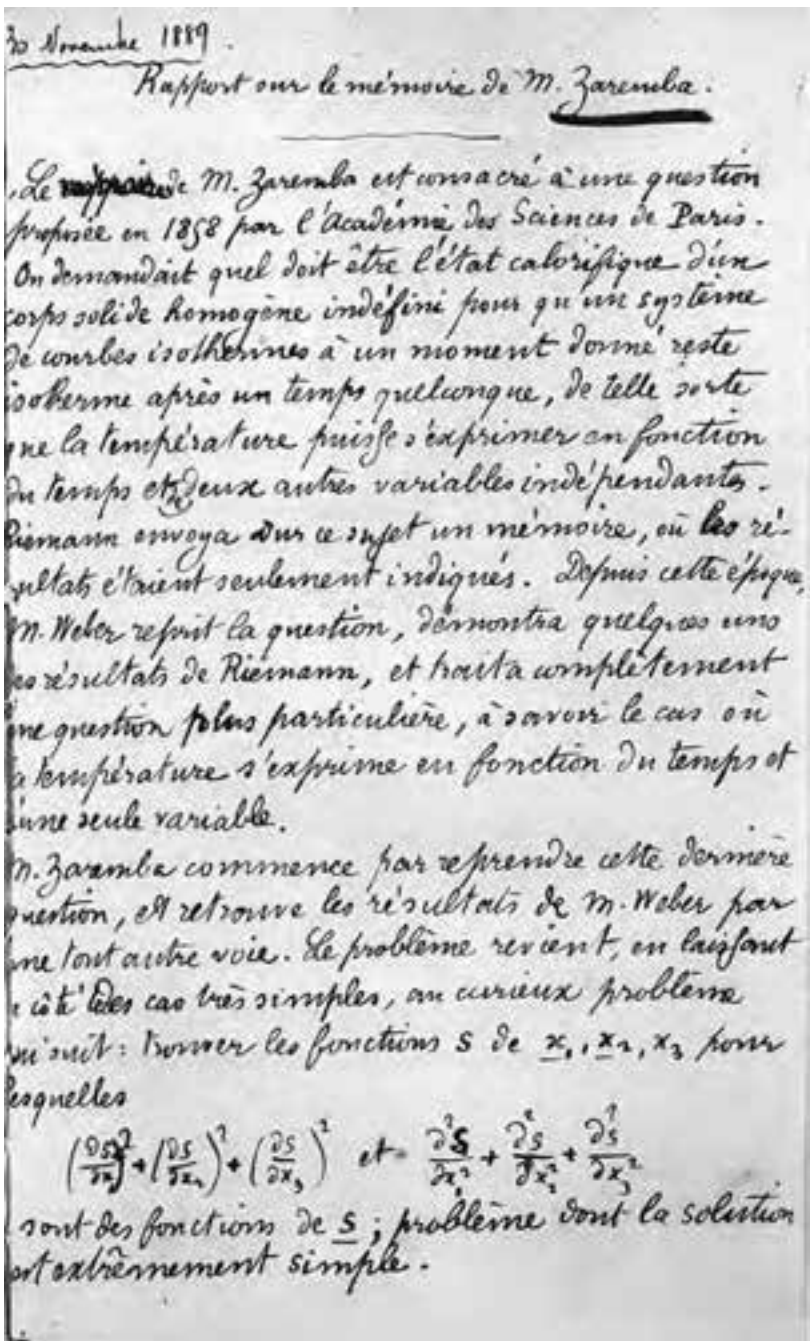 30 Novembre 1889.
Rapport sur le mémoire de M. Zaremba.
Le de M. Zaremba est consacré à une question
proposée en 1858 par l'Académie des Sciences de Paris.
On demandait quel doit être l'état calorifique d'un
corps solide homogène indéfini pour qu'un système
de courbes isothermes à un moment donné reste
isotherme après un temps quelconque, de telle sorte
que la température puisse s'exprimer en fonction
du temps et de deux autres variables indépendantes.
Riemann envoya sur ce sujet un mémoire, où les ré-
sultats étaient seulement indiqués. Depuis cette époque,
M. Weber reprit la question, démontra quelques uns
des résultats de Riemann, et traita complètement
une question plus particulière, à savoir le cas où
la température s'exprime en fonction du temps et
d'une seule variable.
M. Zaremba commence par reprendre cette dernière
question, et retrouve les résultats de M. Weber par
une tout autre voie. Le problème revient, en laissant
à côté des cas très simples, au curieux problème
qui suit : trouver les fonctions S de x₁, x₂, x₃ pour
lesquelles
(∂S/∂x₁)² + (∂S/∂x₂)² + (∂S/∂x₃)² et ∂²S/∂x₁² + ∂²S/∂x₂² + ∂²S/∂x₃²
sont des fonctions de S ; problème dont la solution
est extrêmement simple.